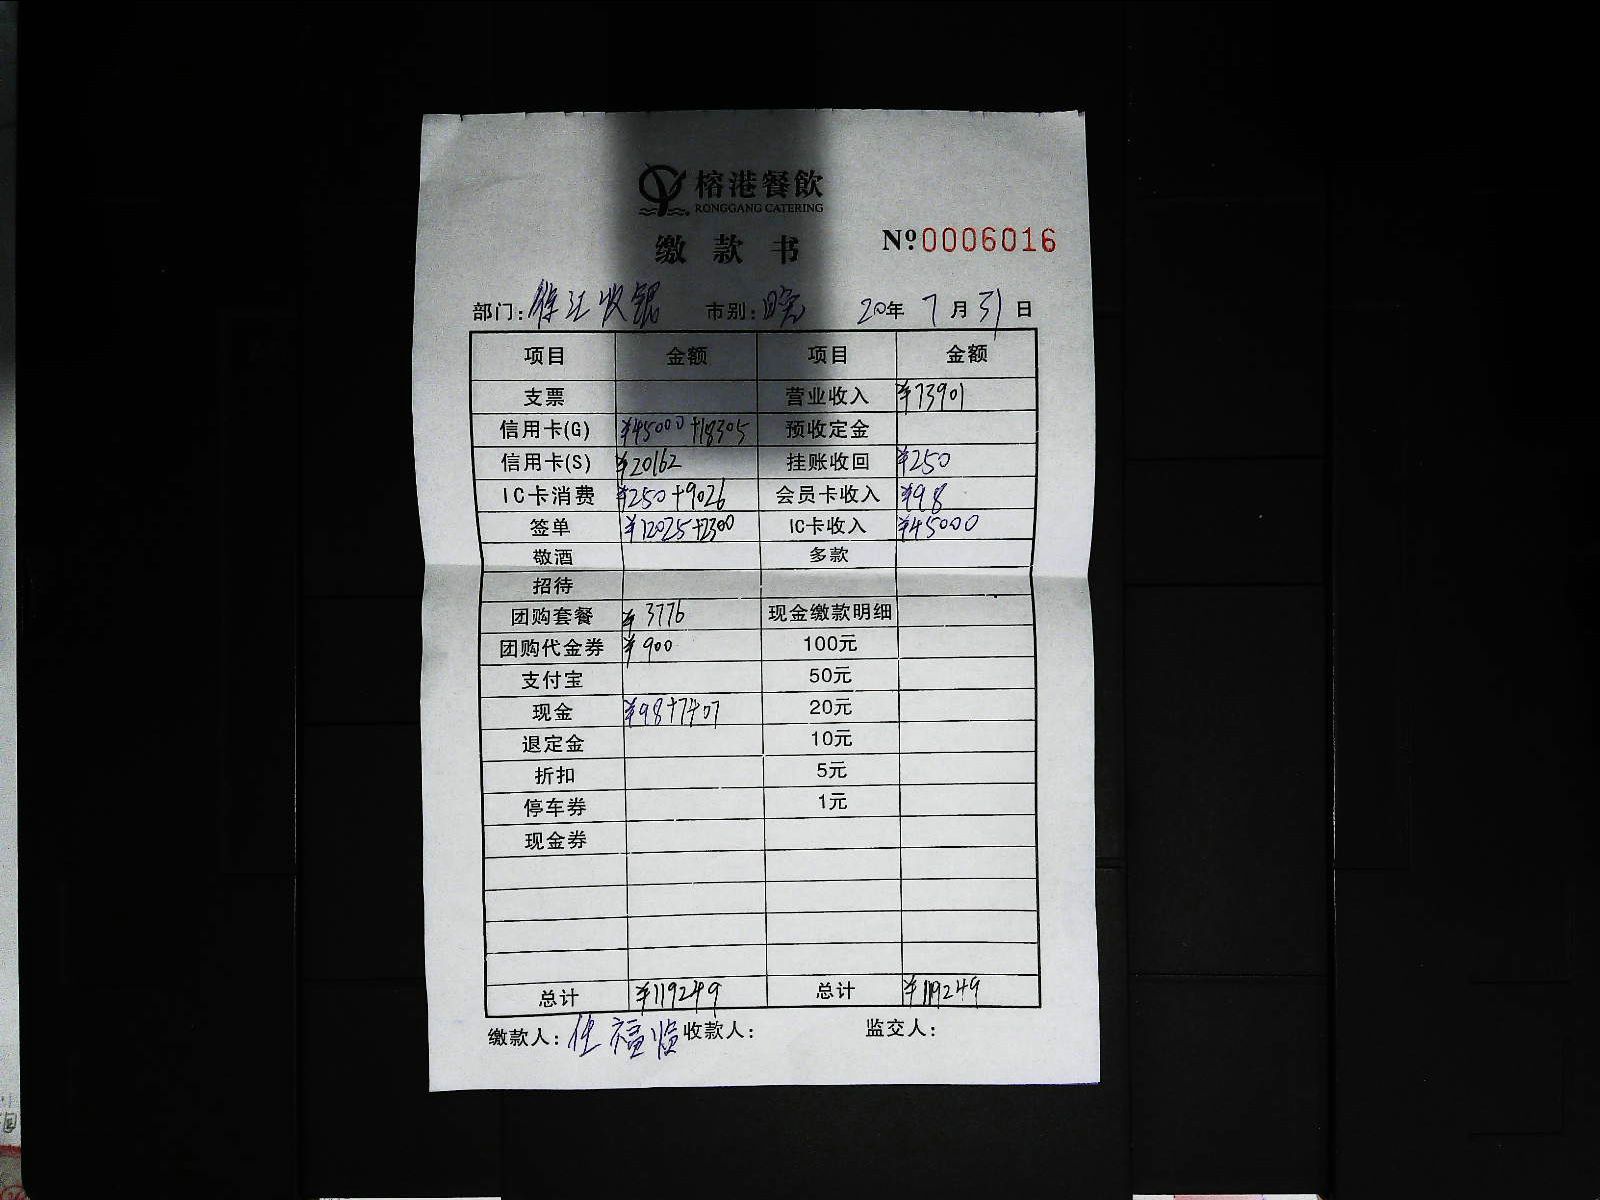 榕港餐飲
RONGGANG CATERING
缴款书 Nº0006016
部门: 徐汇收银 市别: 晚 20年 7月 31日
项目 金额 项目 金额
支票 营业收入 ¥73901
信用卡(G) ¥45000+18305 预收定金
信用卡(S) ¥20162 挂账收回 ¥250
IC卡消费 ¥250+9026 会员卡收入 ¥98
签单 ¥12025+2300 IC卡收入 ¥45000
敬酒 多款
招待
团购套餐 ¥3776 现金缴款明细
团购代金券 ¥900 100元
支付宝 50元
现金 ¥98+7407 20元
退定金 10元
折扣 5元
停车券 1元
现金券
总计 ¥119249 总计 ¥119249
缴款人: 任福 收款人: 监交人: